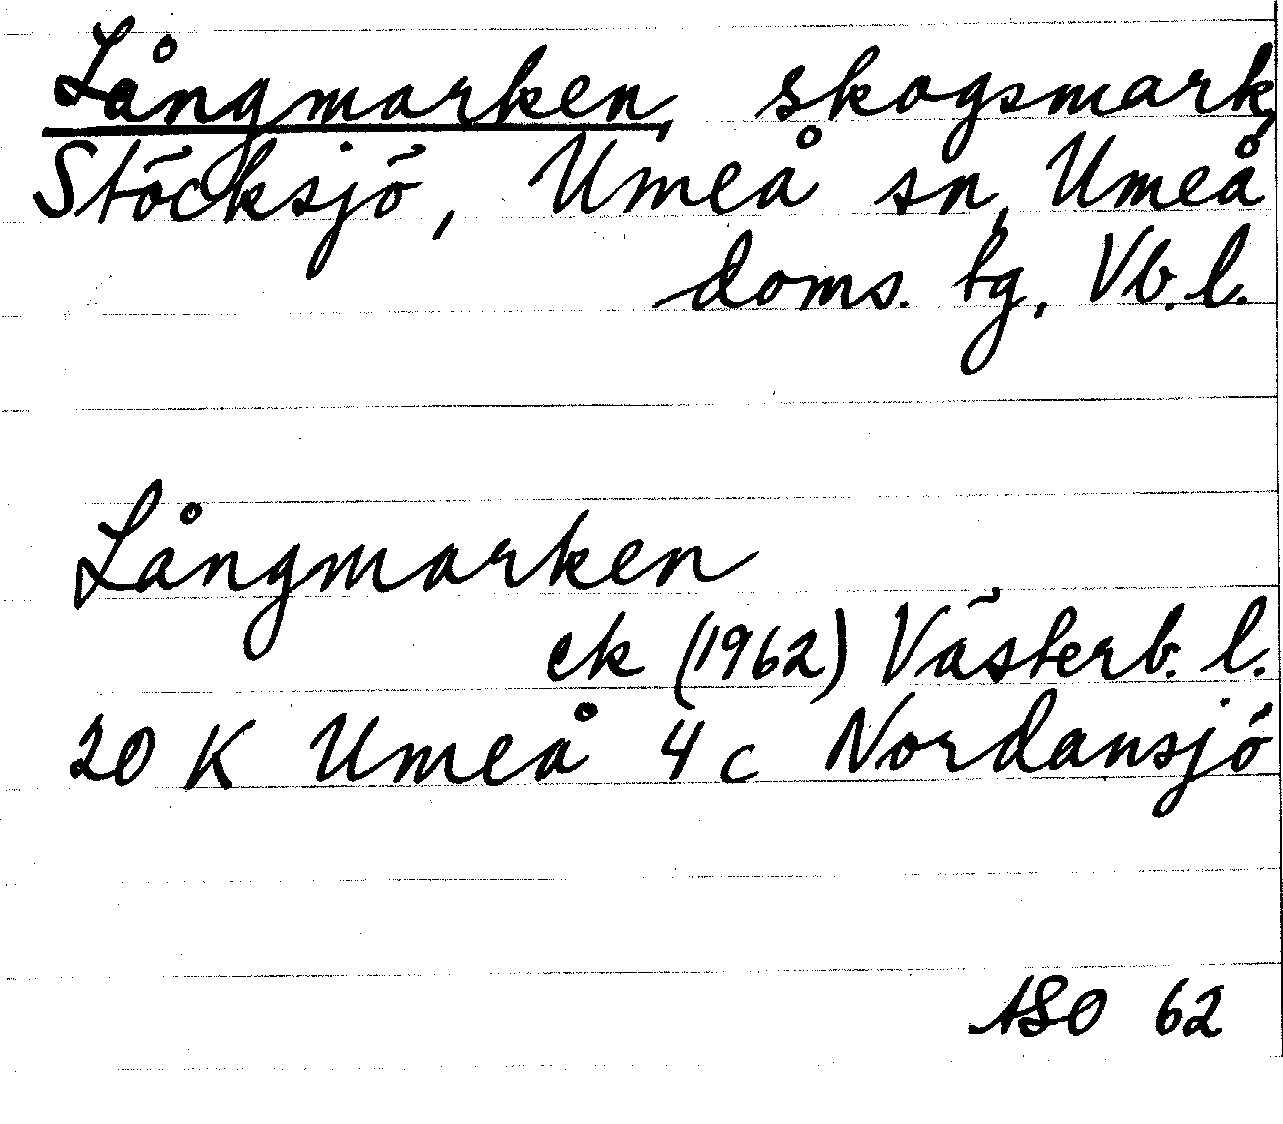 Långmarken, skogsmark,
Stöcksjö, Umeå sn, Umeå
doms. tg, Vb. l.
Långmarken
ek (1962) Västerb. l.
20 K Umeå 4 c Nordansjö
ASO 62